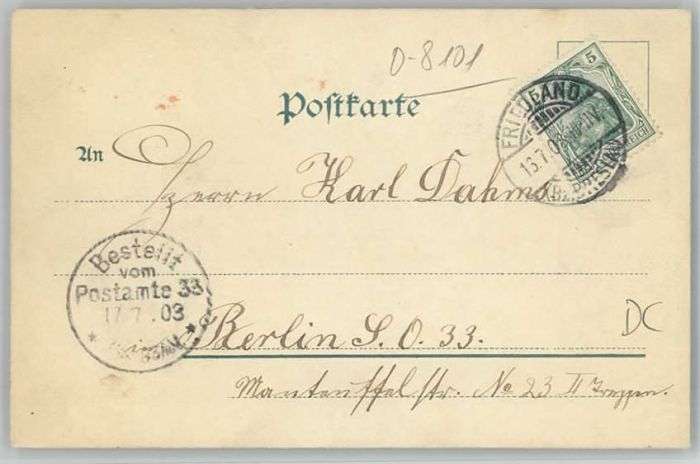 0-8101
5
Postkarte
FRIEDLAND
16.7.03
(BZ. BRESLAU)
An
Herrn Karl Dahms
Bestellt
vom
Postamte 33
17.7.03
in Berlin S. O. 33.
DC
Manteuffelstr. No 23 II Treppen.